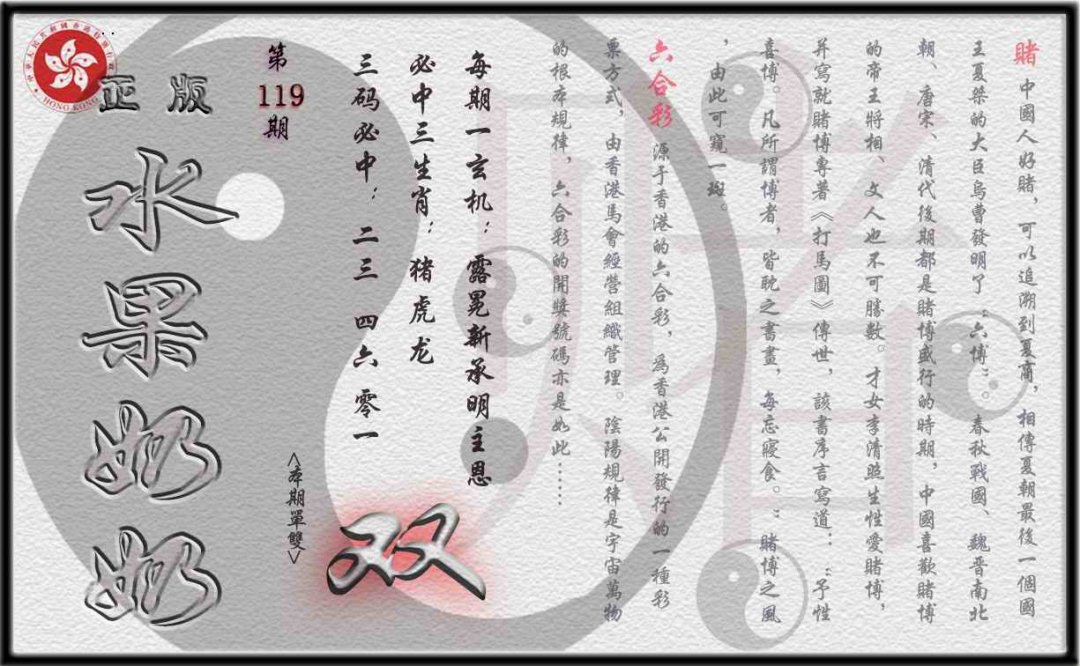 賭 中國人好賭，可以追溯到夏商，相傳夏朝最後一個國
王夏桀的大臣烏曹發明了“六博”。春秋戰國、魏晋南北
朝、唐宋、清代後期都是賭博盛行的時期，中國喜歡賭博
的帝王將相、文人也不可勝數。才女李清照生性愛賭博，
并寫就賭博專著《打馬圖》傳世，該書序言寫道：“予性
喜博。凡所謂博者，皆耽之書晝，每忘寢食。”賭博之風
，由此可窺一斑。
六合彩 源于香港的六合彩，爲香港公開發行的一種彩
票方式，由香港馬會經營組織管理。陰陽規律是宇宙萬物
的根本規律，六合彩的開獎號碼亦是如此……
每期一玄机：露冕新承明主恩
必中三生肖：猪虎龙
三码必中：二三 四六 零一
双
<本期單雙>
第
119
期
正版
水果奶奶
HONG KONG